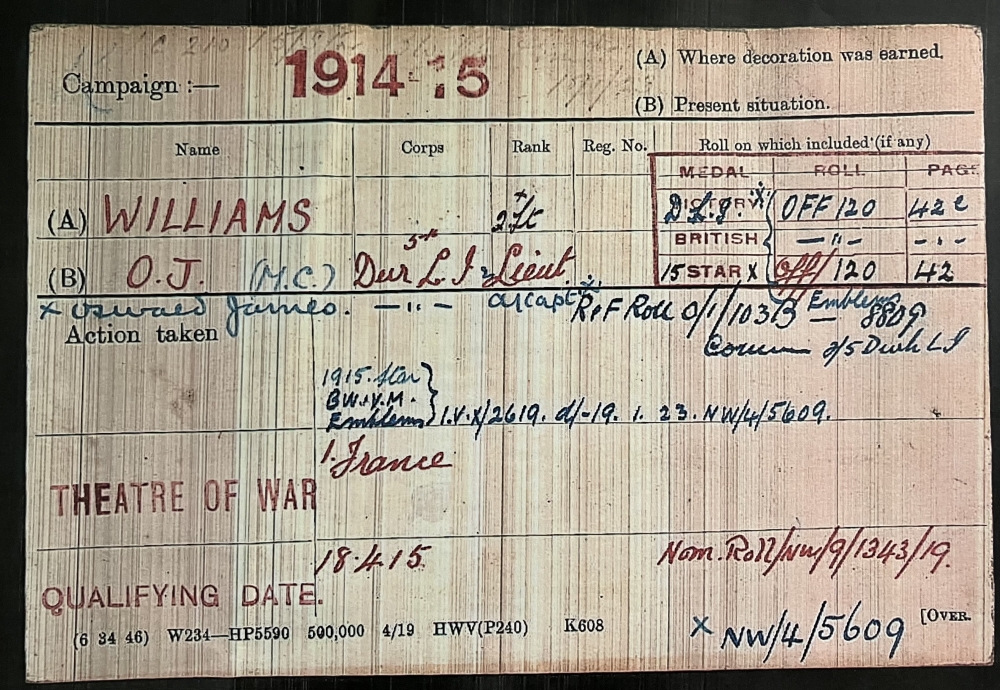 Campaign :— 1914-15 (A) Where decoration was earned.
(B) Present situation.
Name Corps Rank Reg. No. Roll on which included (if any)
MEDAL ROLL PAGE
(A) WILLIAMS 2/Lt VICTORY D.L.I. OFF 120 42
BRITISH —"— -"-
(B) O.J. (M.C.) 5th Dur L.I. Lieut. 15 STAR X Off/120 42
x Oswald James. —"— a/Capt Ref Roll O/1/103B — Emblems 8809
Action taken
Comm 2/5 Durh L I
1915 Star
BW.V.M.
Emblems } I.V.X/2619. d/-19. 1. 23. NW/4/5609.
THEATRE OF WAR 1. France
QUALIFYING DATE. 18.4.15. Nom. Roll/NW/9/1343/19.
(6 34 46) W234—HP5590 500,000 4/19 HWV(P240) K608 x NW/4/5609 [OVER.